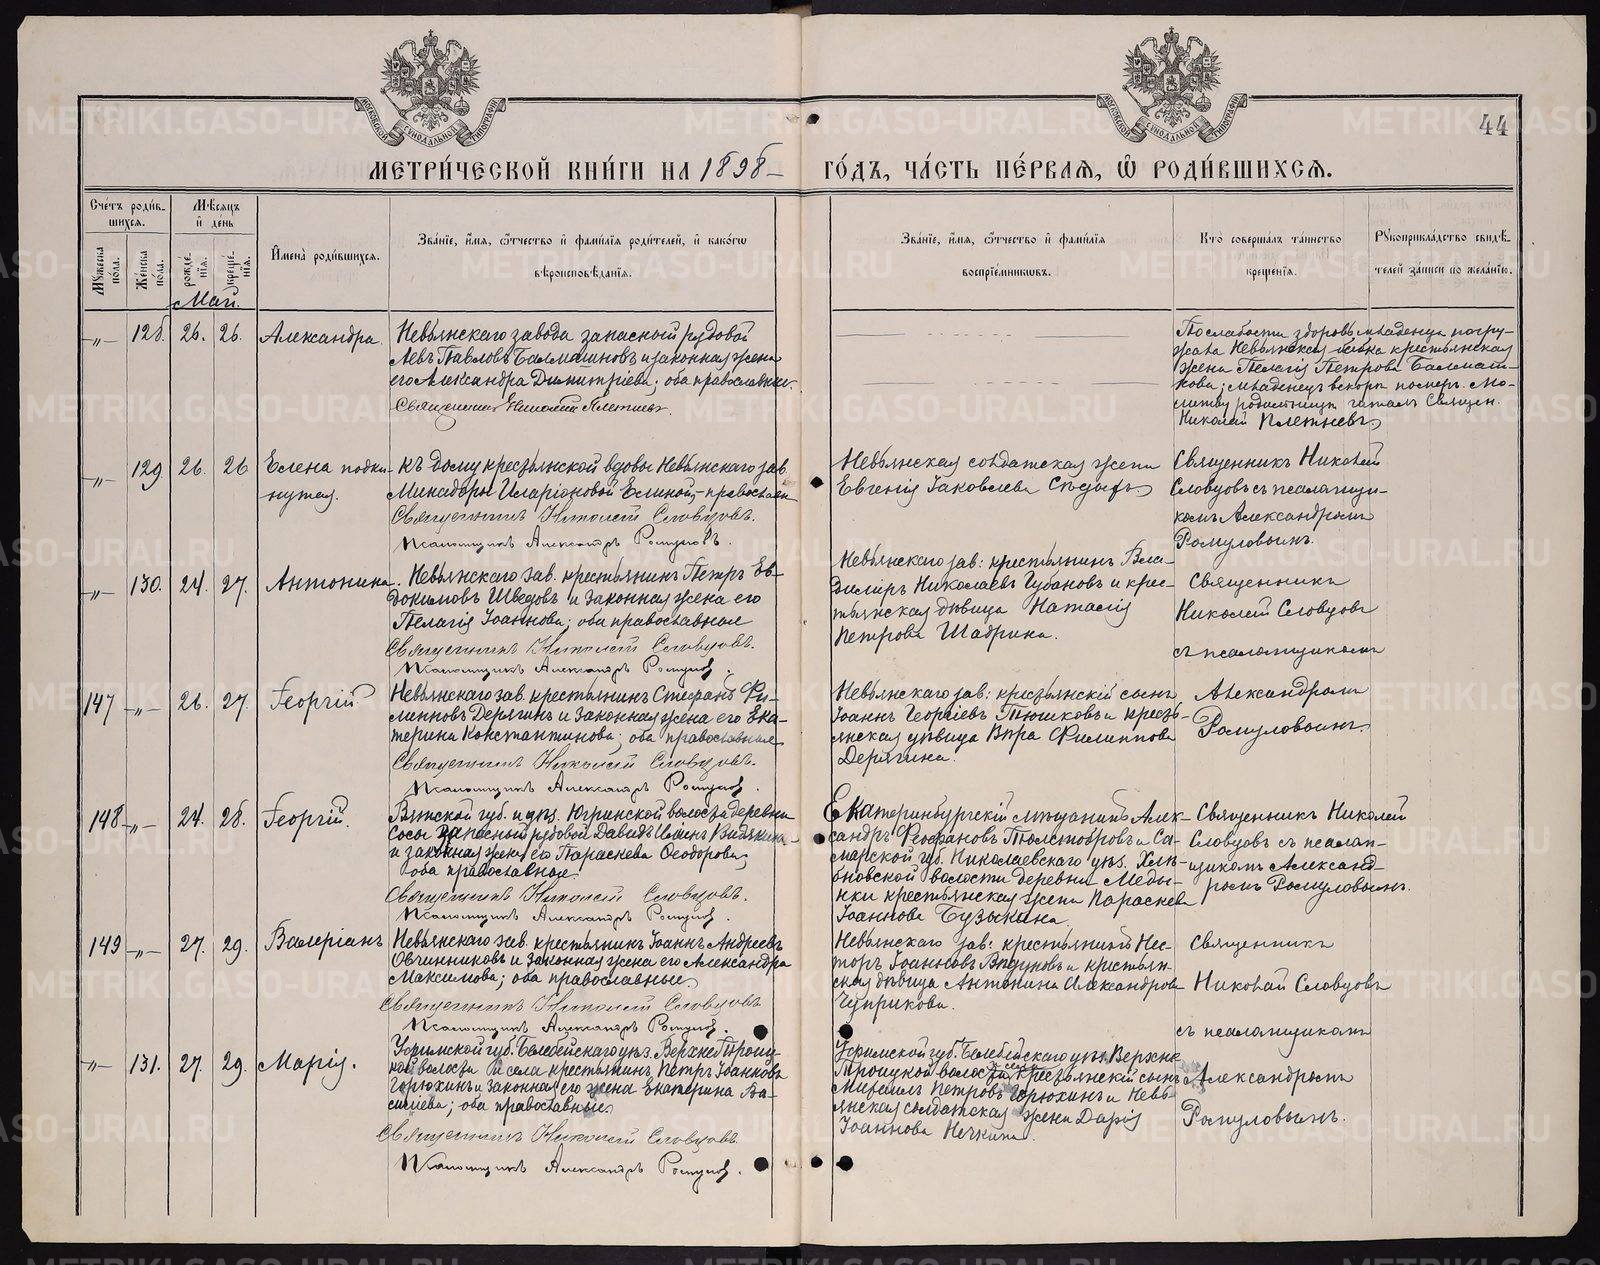 МЕТРИ́ЧЕСКОЙ КНИ́ГИ НА 1898 ГО́ДЪ, ЧА́СТЬ ПЕ́РВАЯ, Ѽ РОДИ́ВШИХСЯ.
44
Сче́тъ роди́в-
шихся.
Мужеска пола.
Женска пола.
Мѣсяцъ и день
рожде́нія.
креще́нія.
И́мена роди́вшихся.
Зва́нїе, и́мя, ѻ҆́тчество и҆ фами́лїя роди́телей, и҆ како́гѡ
вѣроисповѣ́данїя.
Зва́нїе, и́мя, ѻ҆́тчество и҆ фами́лїя
воспрїе́мниковъ.
Кто̀ соверша́лъ та́инство
креще́нїя.
Рукоприкла́дство свидѣ́-
телей за́писи по жела́нїю.
Май.
-"- 128. 26. 26. Александра
Невьянскаго завода запасной рядовой
Левъ Павловъ Балмашновъ и законная жена
его Александра Димитріева; оба православные.
Священникъ Николай Плетневъ.
По слабости здоровья младенца погру-
жала Невьянская бабка крестьянская
жена Пелагія Петрова Балмаш-
нова; младенецъ вскорѣ померъ. Мо-
литву родильницѣ читалъ Священ.
Николай Плетневъ
-"- 129. 26. 26 Елена подки-
нутая.
Къ дому крестьянской вдовы Невьянскаго зав.
Минадоры Иларіоновой Елиной, - православн.
Священникъ Николай Словцовъ.
Псаломщикъ Александръ Ромуловъ.
Невьянская солдатская жена
Евгенія Іаковлева
Священникъ Николай
Словцовъ съ псаломщи-
комъ Александромъ
Ромуловымъ.
-"- 130. 24. 27. Антонина.
Невьянскаго зав. крестьянинъ Петръ Ев-
докимовъ Шведовъ и законная жена его
Пелагія Іоаннова; оба православные
Священникъ Николай Словцовъ.
Псаломщикъ Александръ Ромулов.
Невьянскаго зав: крестьянинъ Вла-
димиръ Николаевъ Губановъ и крес-
тьянская дѣвица Наталія
Петрова Шадрина.
Священникъ
Николай Словцовъ
съ псаломщикомъ
147 -"- 26. 27. Георгій
Невьянскаго зав. крестьянинъ Стефанъ Фи-
липповъ Дерягинъ и законная жена его Ека-
терина Константинова; оба православные
Священникъ Николай Словцовъ.
Псаломщикъ Александръ Ромулов.
Невьянскаго зав: крестьянскій сынъ
Іоаннъ Георгіевъ Тюшковъ и кресть-
янская дѣвица Вѣра Филиппова
Дерягина.
Александромъ
Ромуловымъ.
148 -"- 24. 28. Георгій.
Вятской губ. и уѣз. Югринской волости деревни
Сосы запасный рядовой Давидъ Видякинъ
и законная жена его Параскева Ѳеодорова;
оба православные.
Священникъ Николай Словцовъ.
Псаломщикъ Александръ Ромулов.
Екатеринбургскій мѣщанинъ Алек-
сандръ Ѳеофановъ Толстобровъ и Са-
марской губ. Николаевскаго уѣз. Хлѣ-
бновской волости деревни Меды-
нки крестьянская жена Параскева
Іоаннова Бузыкина
Священникъ Николай
Словцовъ съ псалом-
щикомъ Александ-
ромъ Ромуловымъ.
149 -"- 27. 29. Валеріанъ
Невьянскаго зав. крестьянинъ Іоаннъ Андреевъ
Овчинниковъ и законная жена его Александра
Максимова; оба православные.
Священникъ Николай Словцовъ
Псаломщикъ Александръ Ромулов.
Невьянскаго зав: крестьянинъ Нес-
торъ Іоанновъ и крестьян-
ская дѣвица Антонина Александрова
Чуприкова.
Священникъ
Николай Словцовъ
съ псаломщикомъ
-"- 131. 27. 29. Марія.
Уфимской губ. Белебейскаго уѣз. Верхне Троиц-
кой волости и села крестьянинъ Петръ Іоанновъ
Горюхинъ и законная его жена Екатерина Ва-
сильева; оба православные
Священникъ Николай Словцовъ.
Псаломщикъ Александръ Ромулов.
Уфимской губ. Белебейскаго уѣз. Верхне
Троицкой волости и села крестьянскій сынъ
Михаилъ Петровъ Горюхинъ и Невь-
янская солдатская жена Дарія
Іоаннова Нечкина.
Александромъ
Ромуловымъ.